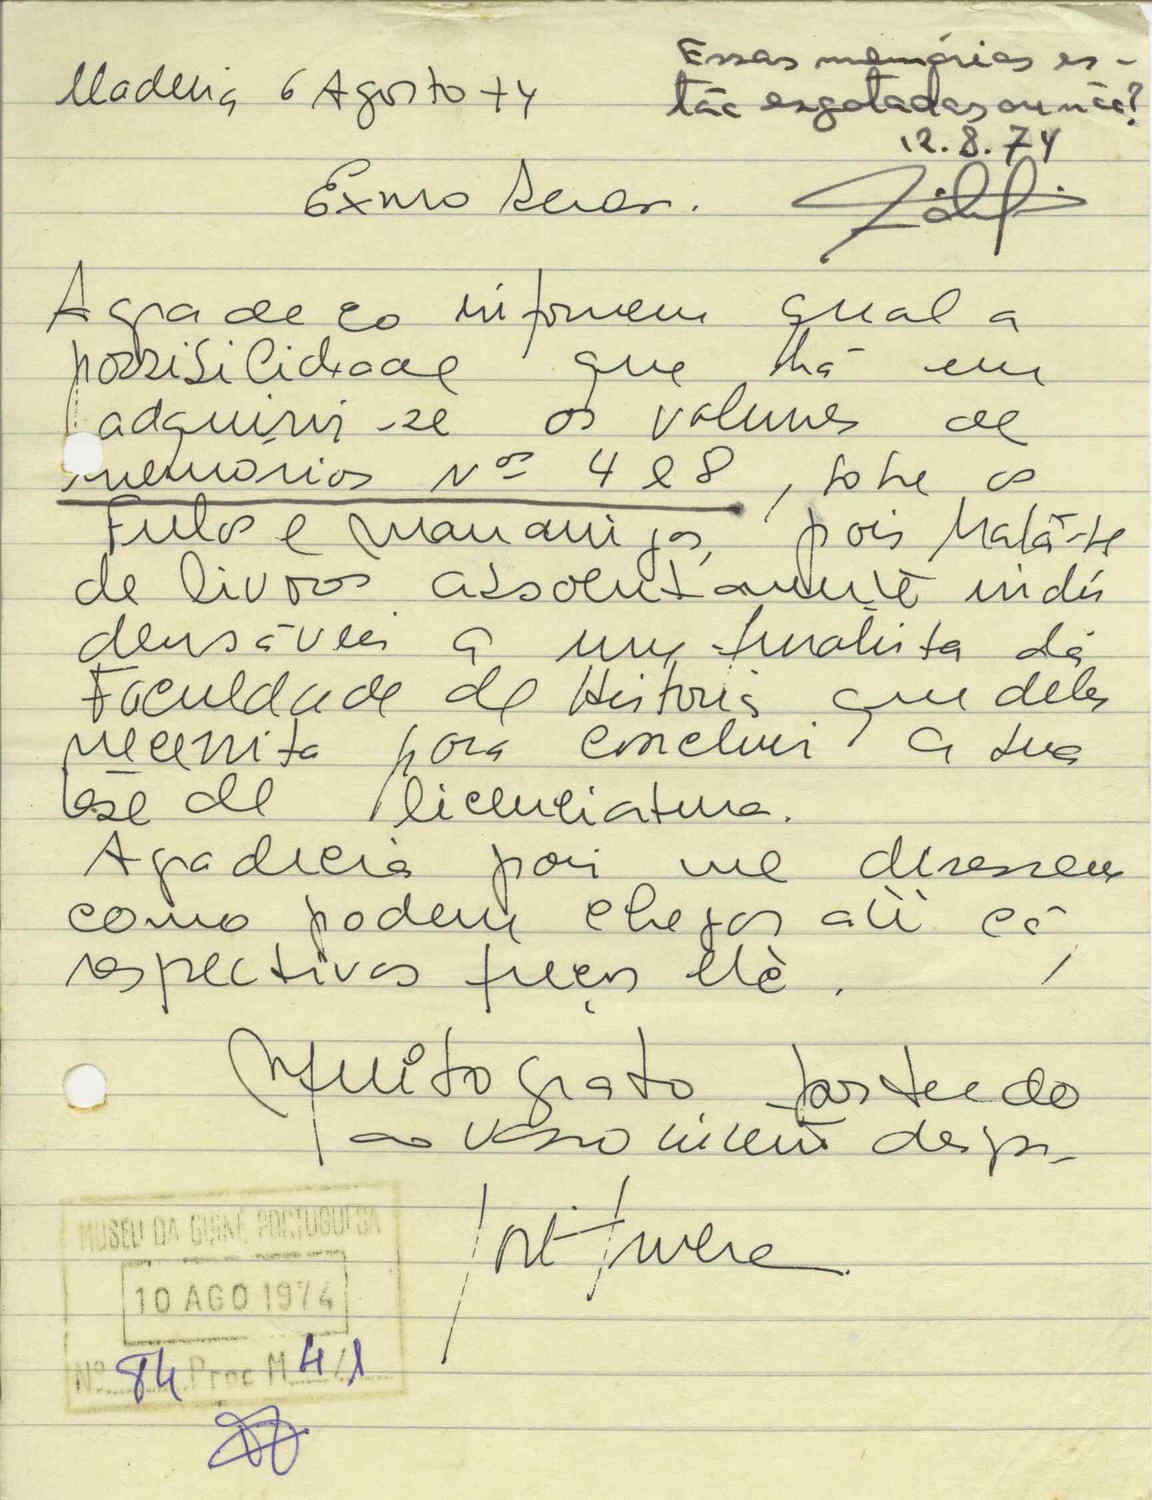 Madeira 6 Agosto 74
Essas memórias es-
tão esgotadas ou não?
12.8.74
Exmo Senhor.
Agradeço informem qual a
possibilidade que há em
adquirir-se os volumes de
memórias Nos 4 e 8, sobre os
Fulas e manjacos, pois trata-se
de livros absolutamente indis
pensáveis a um finalista da
Faculdade de História que deles
necessita para concluir a sua
tese de licenciatura.
Agradecia pois me dissessem
como podem chegar até cá
respectivos preços etc.
Muito grato
ao vosso
MUSEU DA GUINÉ PORTUGUESA
10 AGO 1974
Nº 84 Proc M 4/1